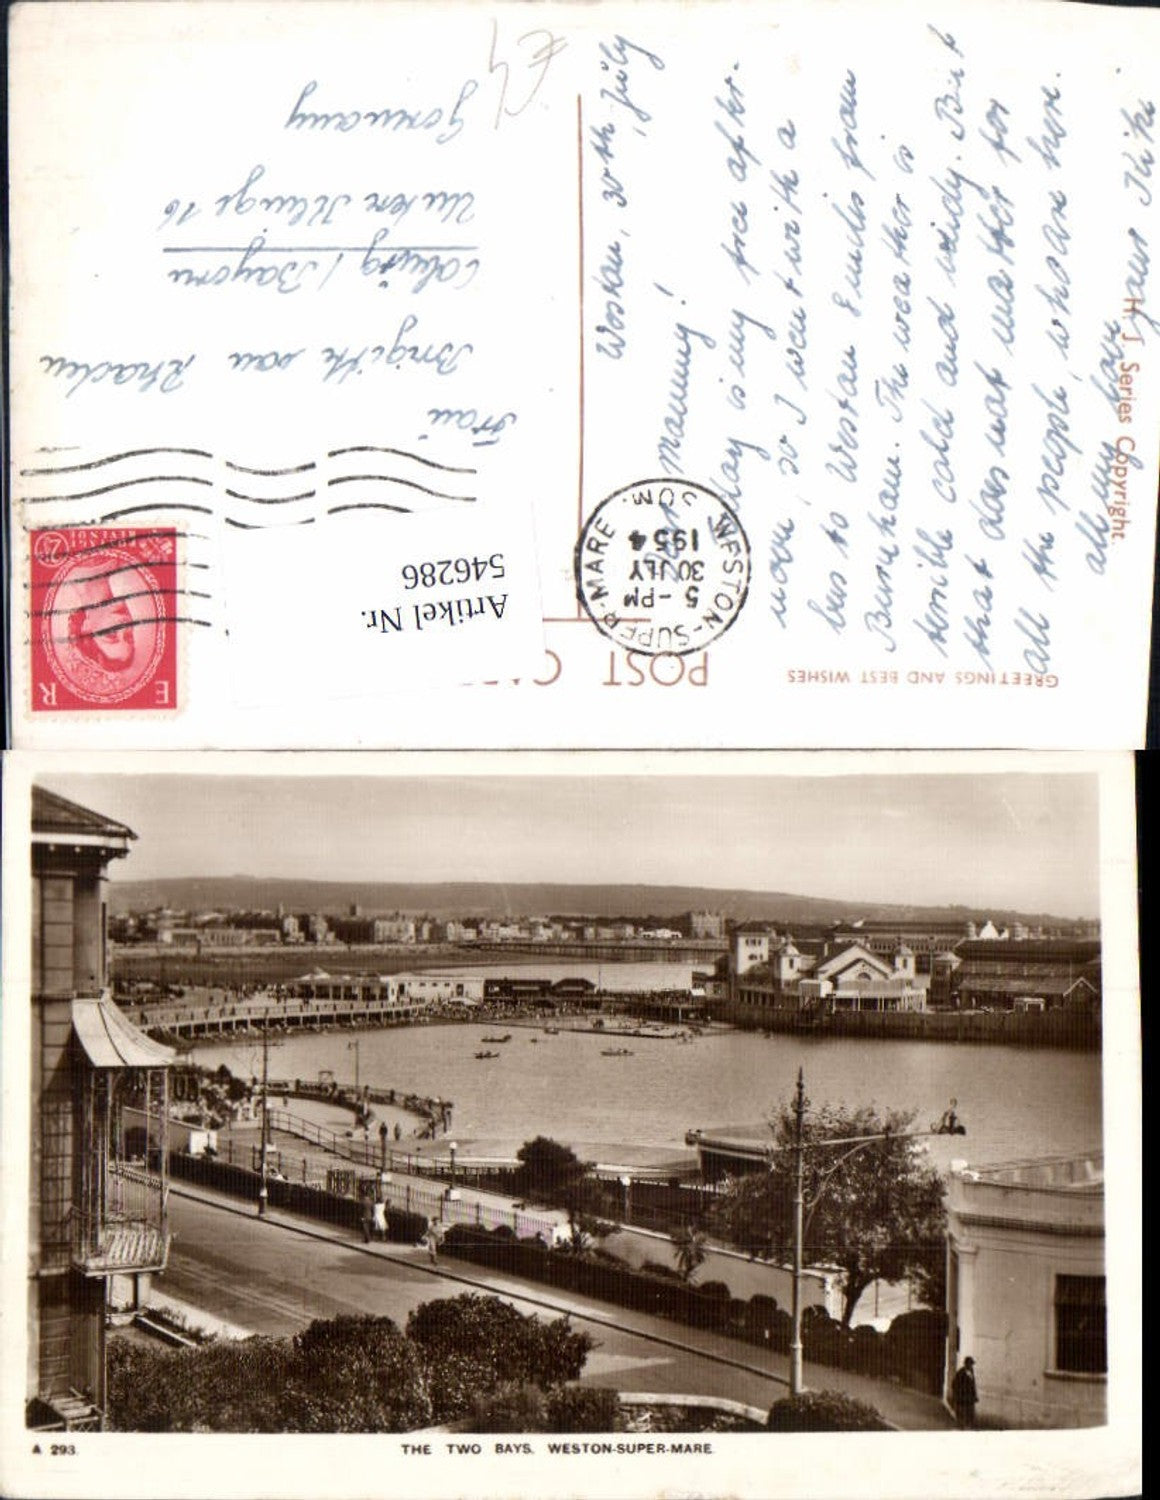 GREETINGS AND BEST WISHES
POST
H. J. Series Copyright.
WESTON-SUPER-MARE
SOM.
5 - PM
30 JLY
1954
E R
REVENUE
Artikel Nr.
546286
£4
Weston, 30th July
Dear Mammy!
Today is my free after-
noon, so I went with a
bus to Weston 8 miles from
Burnham. The weather is
terrible cold and windy. But
that does not matter for
all the people, who are here.
all my love
your Kiki
Frau
Brigitte von Rhaden
Coburg / Bayern
Unter Klinge 16
Germany
A 293.
THE TWO BAYS. WESTON-SUPER-MARE